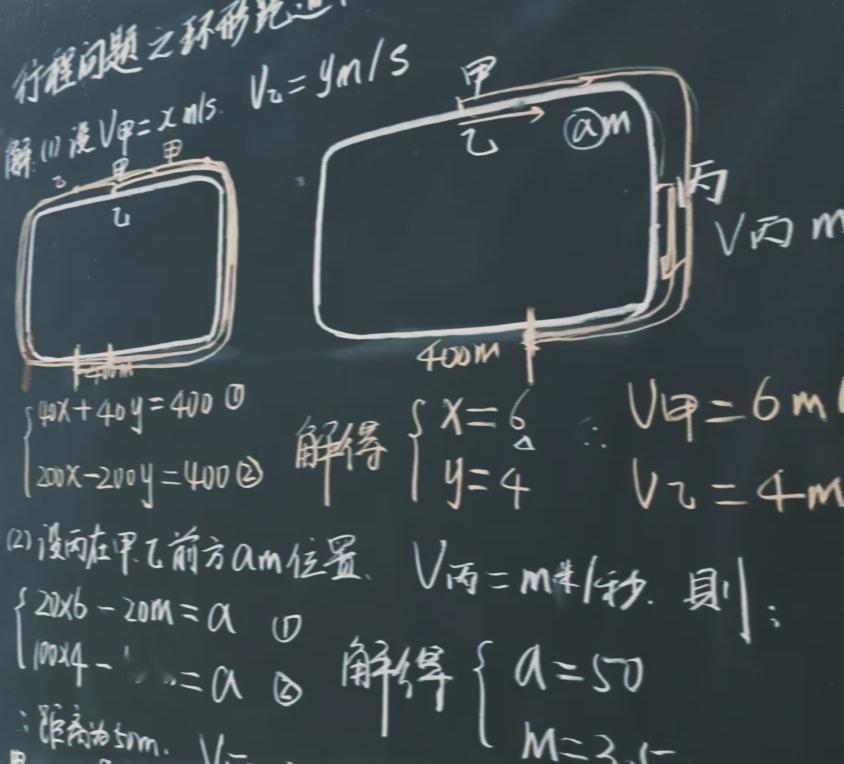 行程问题之环形跑道
解:(1)设V甲=xm/s. V乙=ym/s
乙 甲 甲
乙
甲
乙
ⓐm
丙
V丙 m
400m
400m
40x+40y=400 ①
200x-200y=400 ②
解得 x=6
y=4
∴ V甲=6m/
V乙=4m
(2)设丙在甲.乙前方am位置. V丙=m米/秒. 则:
20×6-20m=a ①
100×4- =a ②
解得 a=50
m=3.5
∴距离为50m. V丙
甲